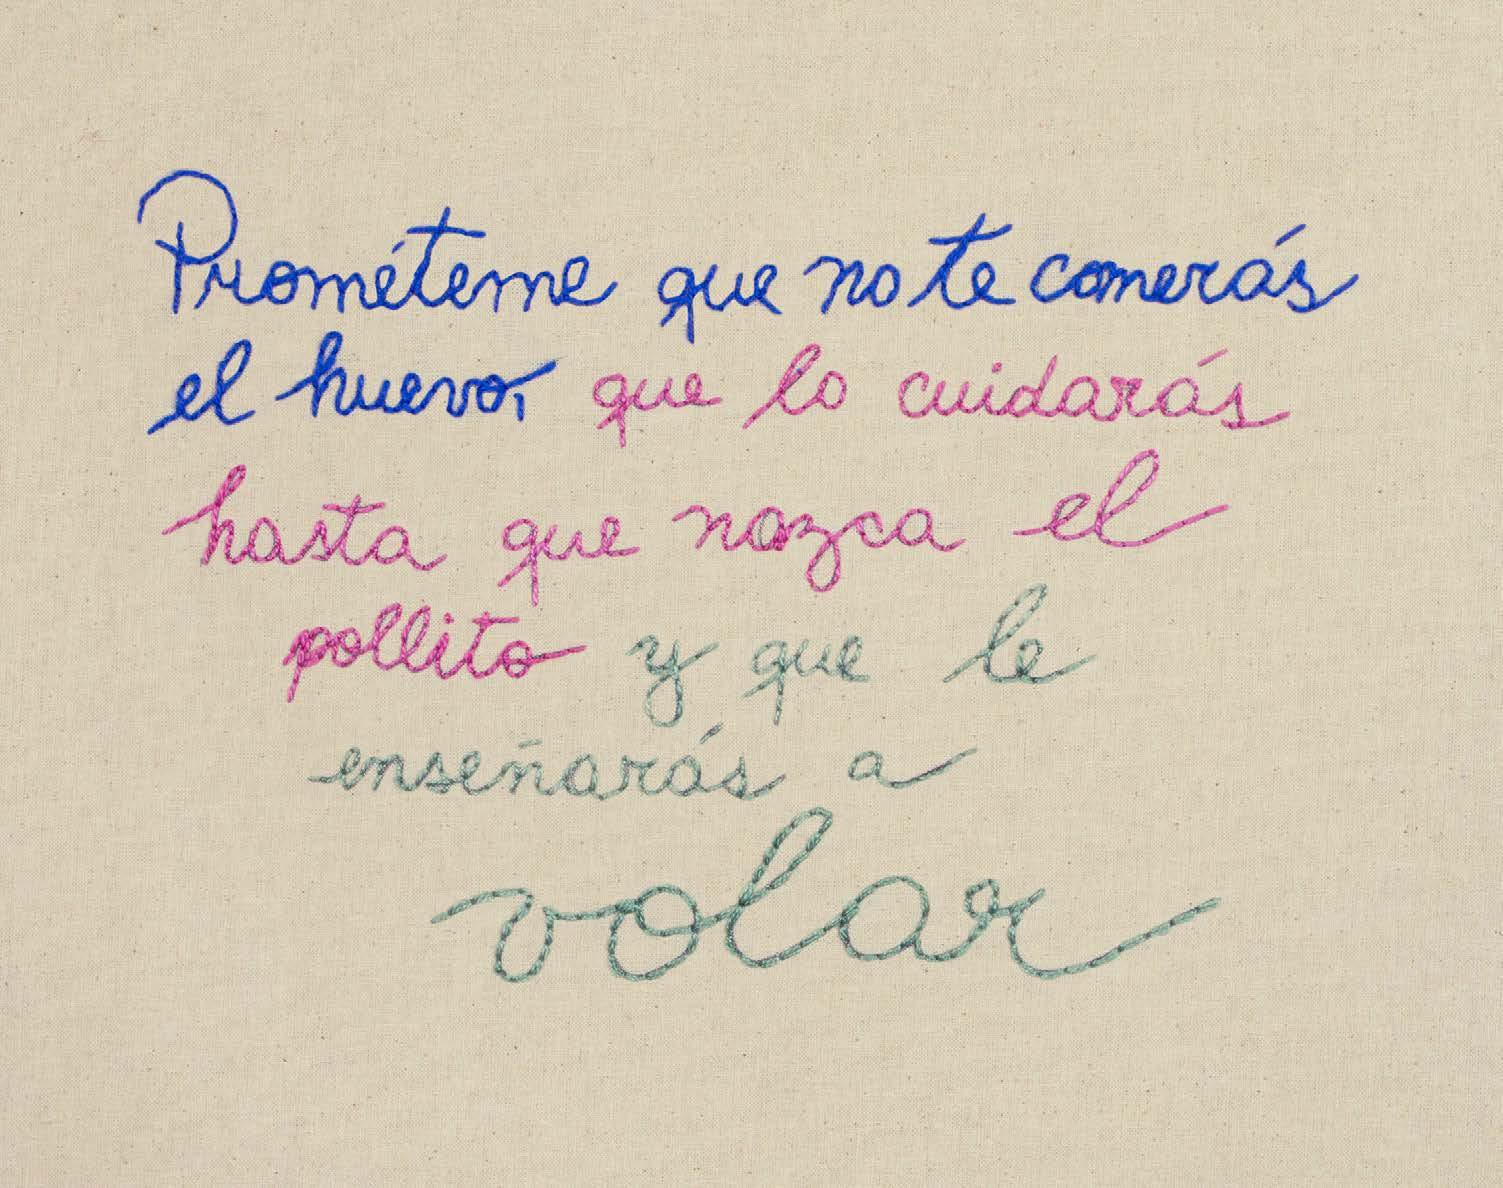 Prométeme que no te comerás
el huevo, que lo cuidarás
hasta que nazca el
pollito y que le
enseñarás a
volar